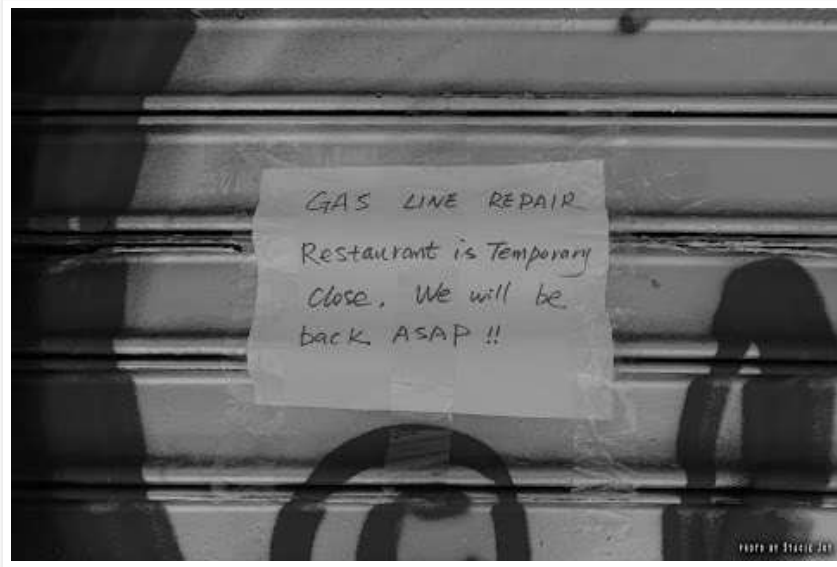 GAS LINE REPAIR
Restaurant is Temporary
Close. We will be
back ASAP !!
PHOTO BY STACIE JOY